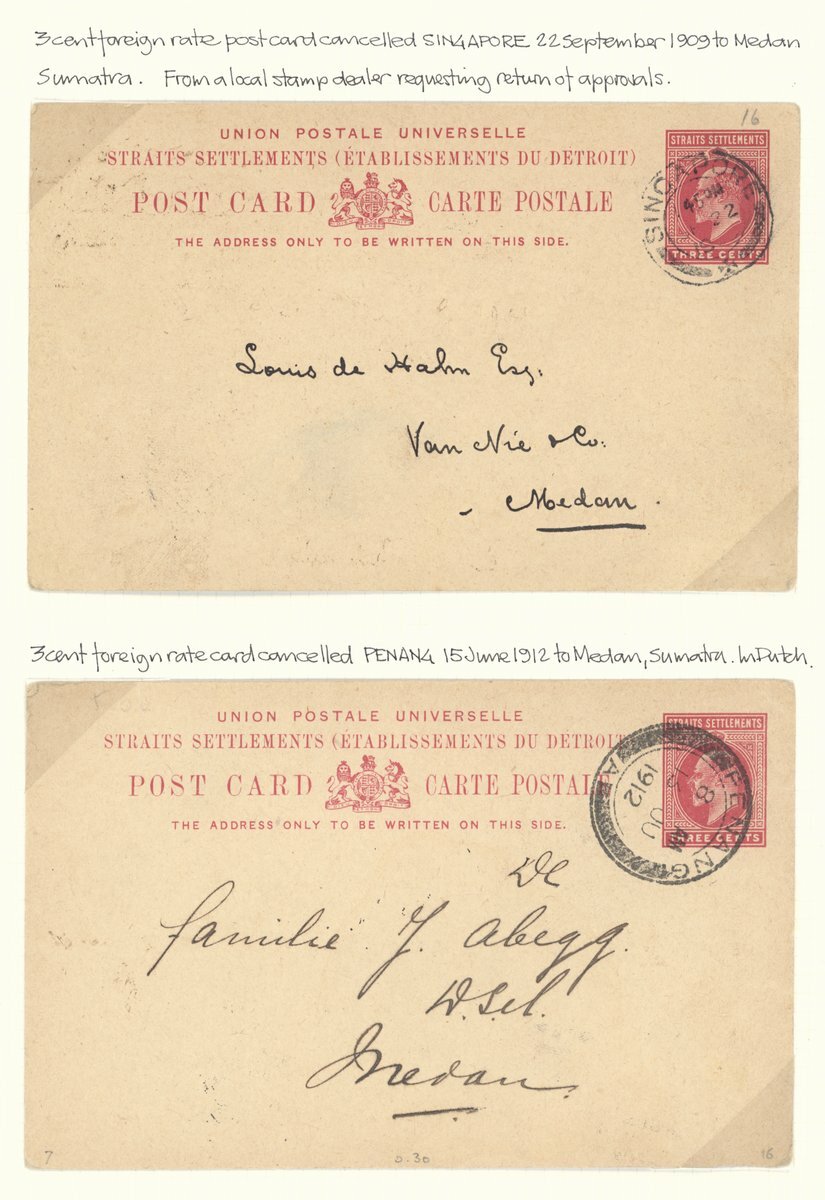 3 cent foreign rate post card cancelled SINGAPORE 22 September 1909 to Medan
Sumatra. From a local stamp dealer requesting return of approvals.
16
UNION POSTALE UNIVERSELLE
STRAITS SETTLEMENTS (ÉTABLISSEMENTS DU DETROIT)
POST CARD CARTE POSTALE
THE ADDRESS ONLY TO BE WRITTEN ON THIS SIDE.
STRAITS SETTLEMENTS
THREE CENTS
SINGAPORE
Louis de Hahn Esq:
Van Nie & Co:
Medan.
3 cent foreign rate card cancelled PENANG 15 June 1912 to Medan, Sumatra. In Dutch.
UNION POSTALE UNIVERSELLE
STRAITS SETTLEMENTS (ÉTABLISSEMENTS DU DÉTROIT
POST CARD CARTE POSTALE
THE ADDRESS ONLY TO BE WRITTEN ON THIS SIDE.
STRAITS SETTLEMENTS
THREE CENTS
PENANG
8 AM
JU
1912
De
familie J. Abegg.
Medan.
7
0.30
16